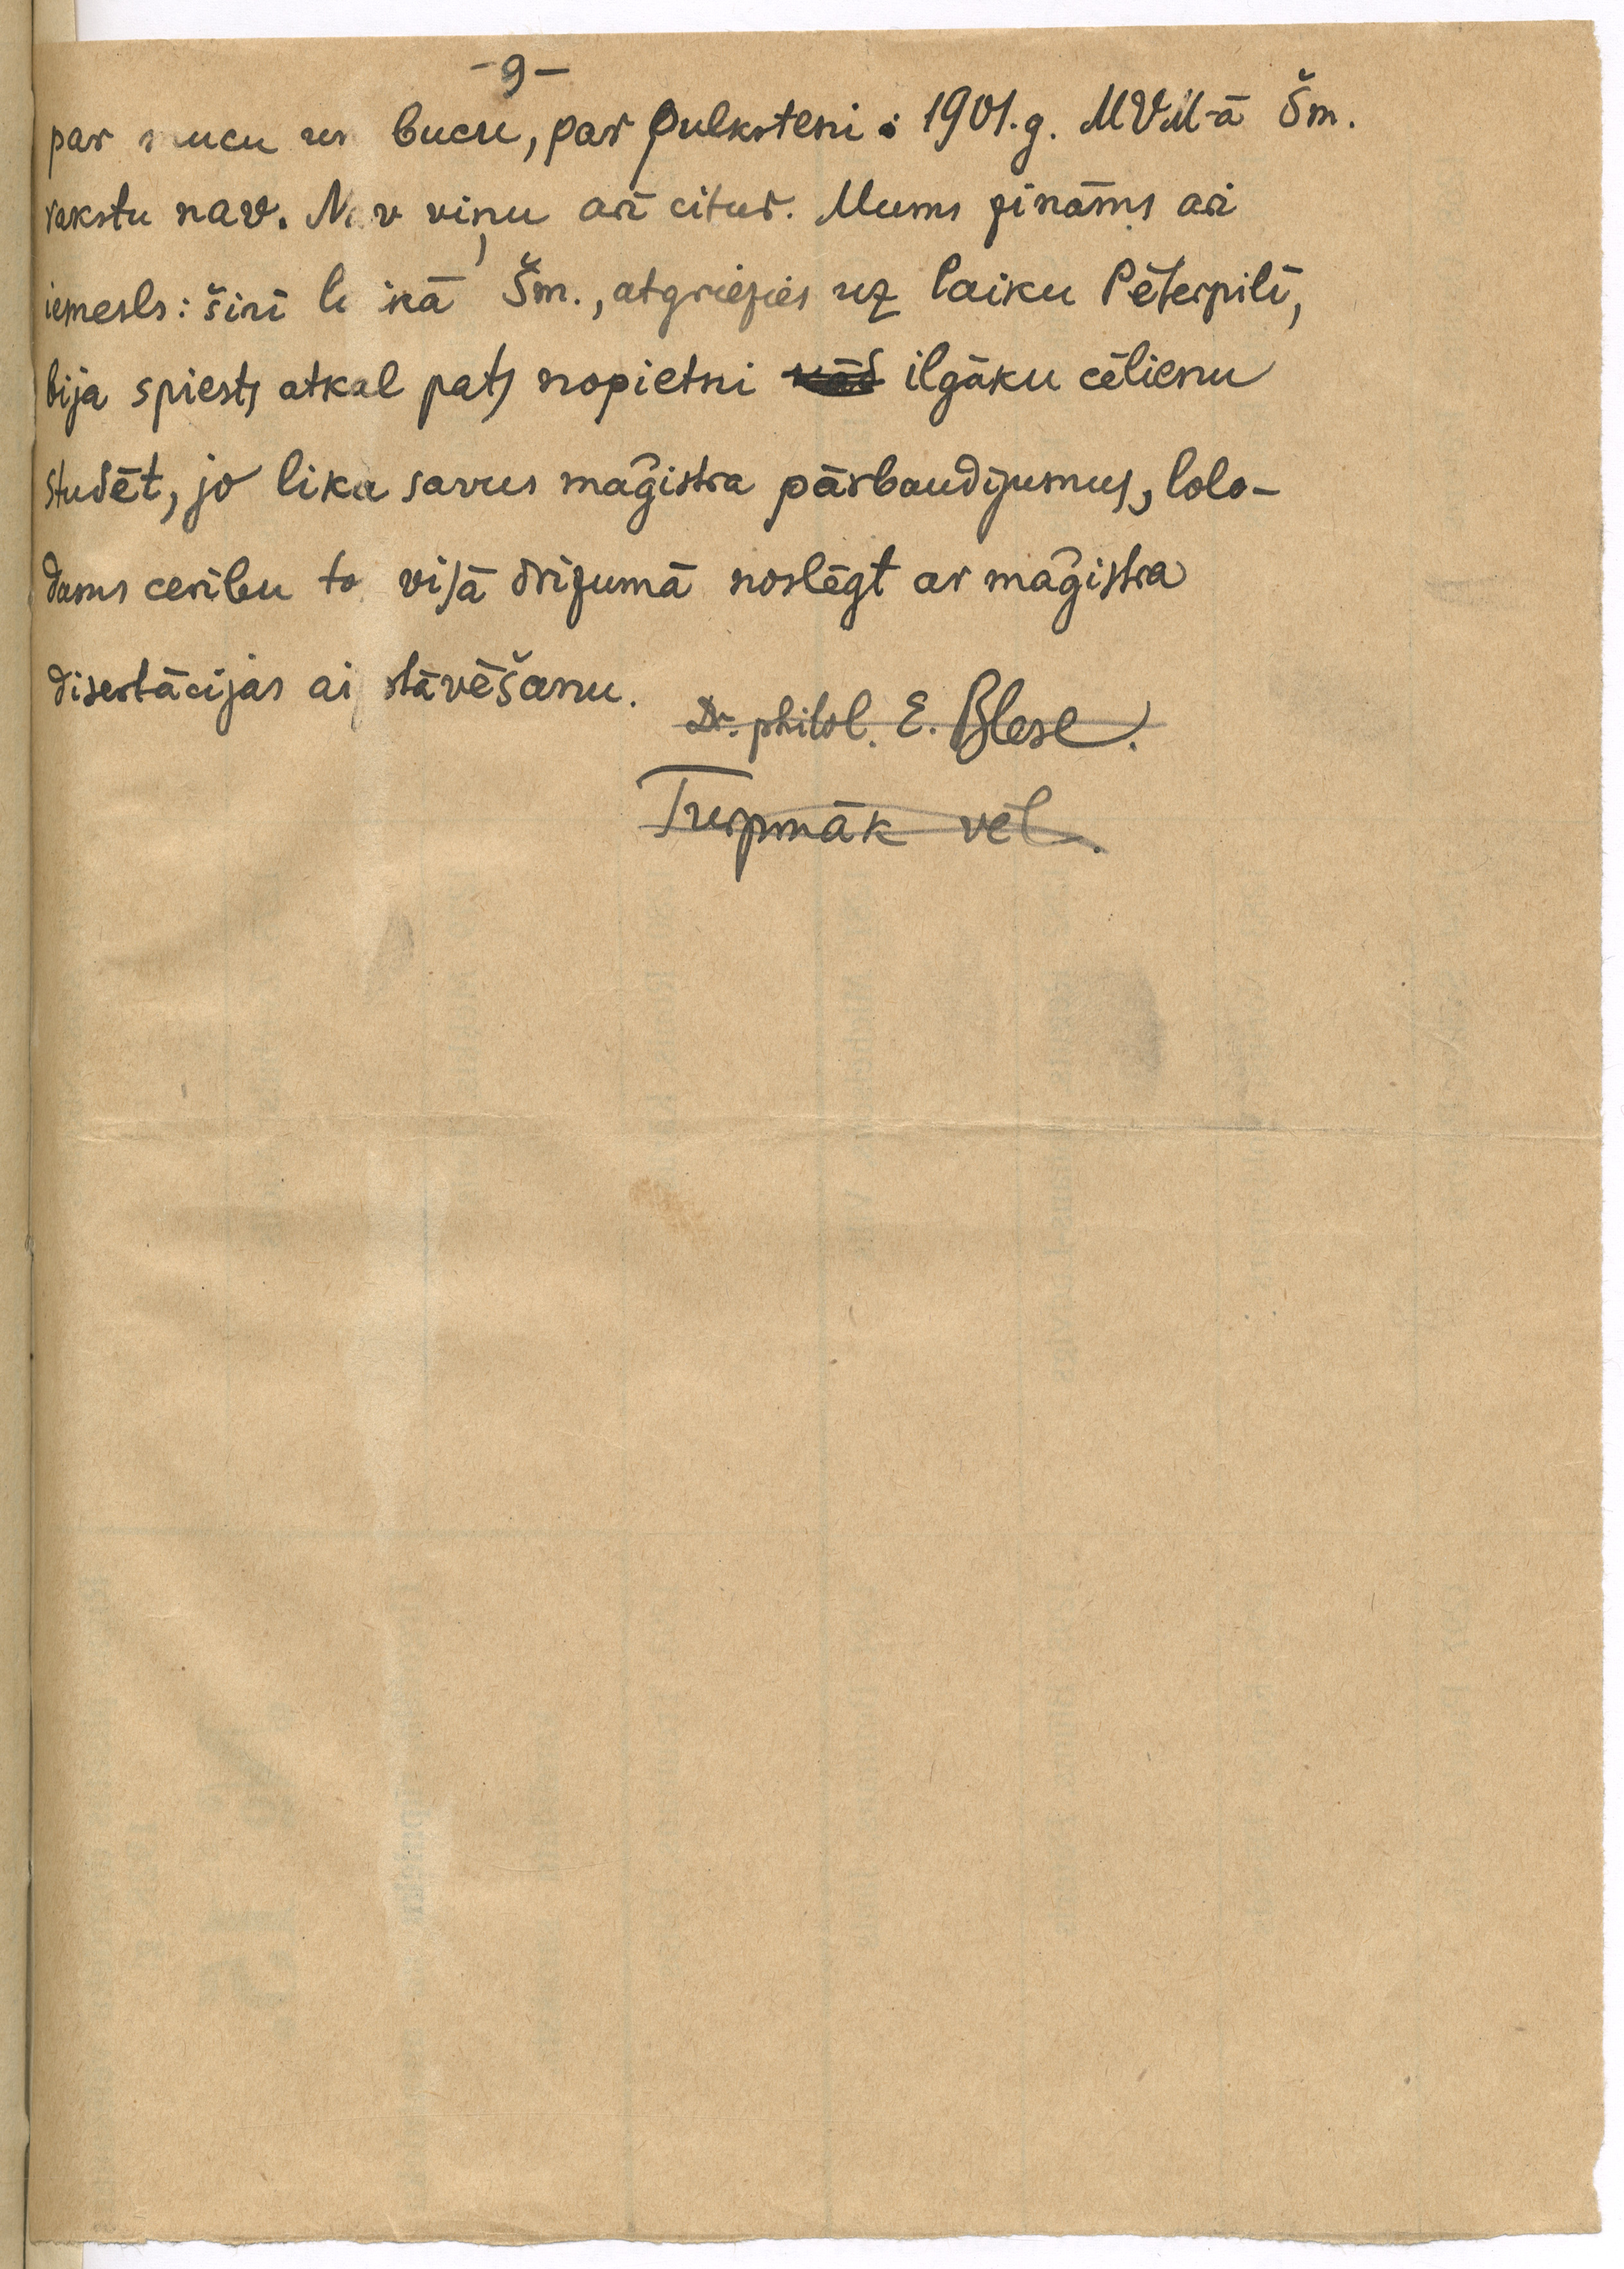 -9-
par mucu un bucu, par pulksteni. 1901.g. MVM-ā Šm.
rakstu nav. Nav viņu arī citur. Mums zināms arī
iemesls: šinī laikā Šm., atgriezies uz laiku Pēterpilī,
bija spiests atkal pats nopietni kād ilgāku cēlienu
studēt, jo lika savus maģistra pārbaudījumus, lolo-
dams cerību to visā drīzumā noslēgt ar maģistra
disertācijas aizstāvēšanu.
Dr. philol. E. Blese.
Turpmāk vēl.